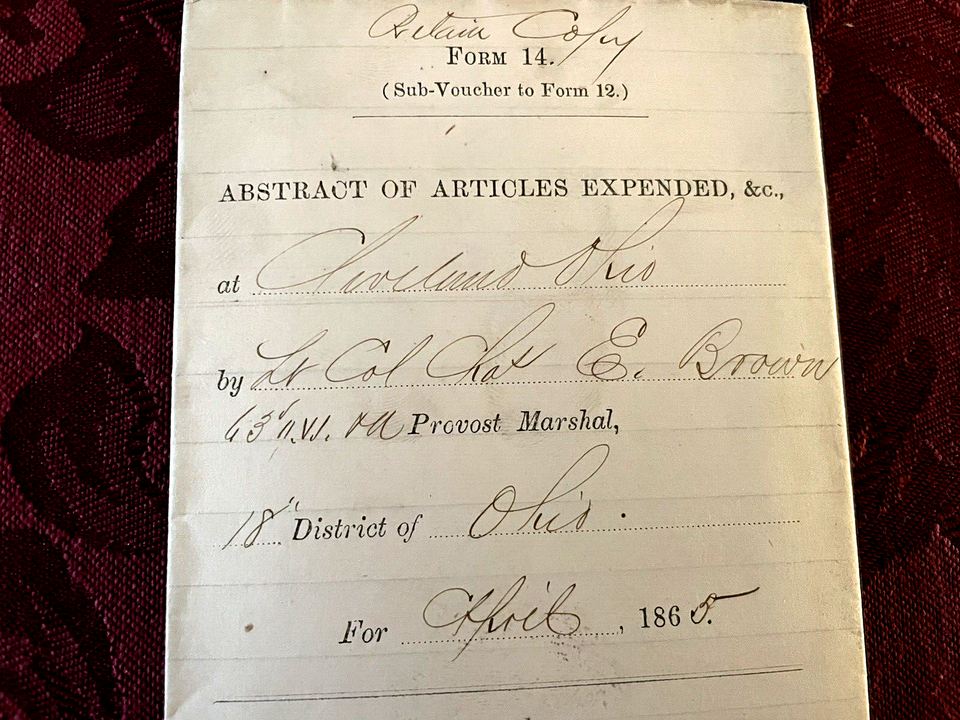 Retain Copy
FORM 14.
(Sub-Voucher to Form 12.)
ABSTRACT OF ARTICLES EXPENDED, &c.,
at Cleveland Ohio
by Lt Col Chas E. Brown
63" O.V.I. Provost Marshal,
18" District of Ohio.
For April, 1865.